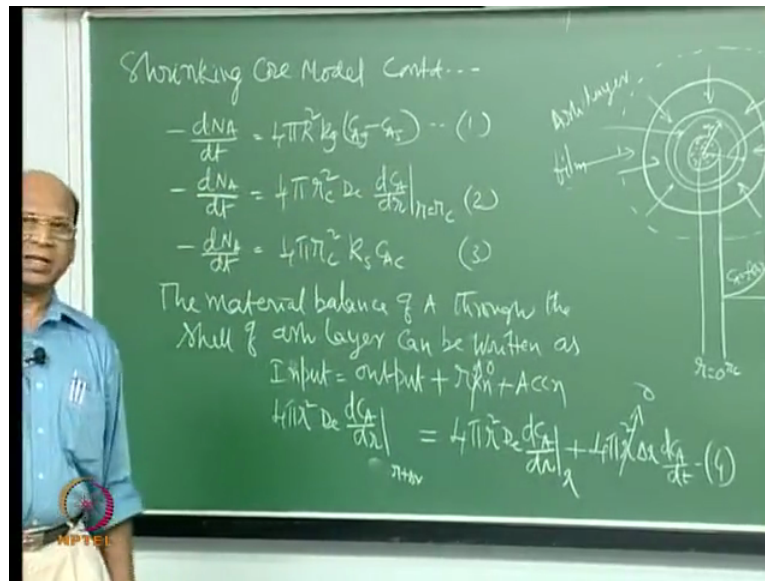 Shrinking Core Model Contd...
- dNA/dt = 4πR² kg (CAg - CAs) -- (1)
- dNA/dt = 4π rc² De dCA/dr|r=rc (2)
- dNA/dt = 4π rc² ks CAc (3)
The material balance of A through the
shell of ash layer can be written as
Input = output + rxn 0 + Accn
4πr² De dCA/dr|r+Δr = 4πr² De dCA/dr|r + 4πr² Δr dCA/dt - (4)
0
Ash layer
film
r=0 rc
NPTEL